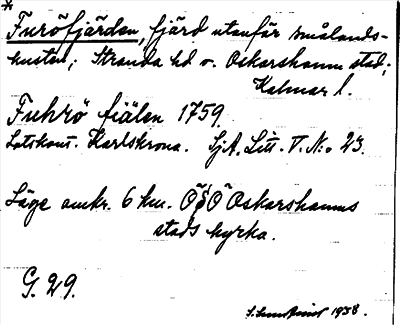 * Furöfjärden, fjärd utanför smålands-
kusten; Stranda hd o. Oskarshamn stad,
Kalmar l.
Fuhrö fiälen 1759
Lotskont. Karlskrona. Sj.A. Litt. V. No. 23.
Läge omkr. 6 km. ÖSÖ Oskarshamns
stads kyrka.
G. 29.
1938.